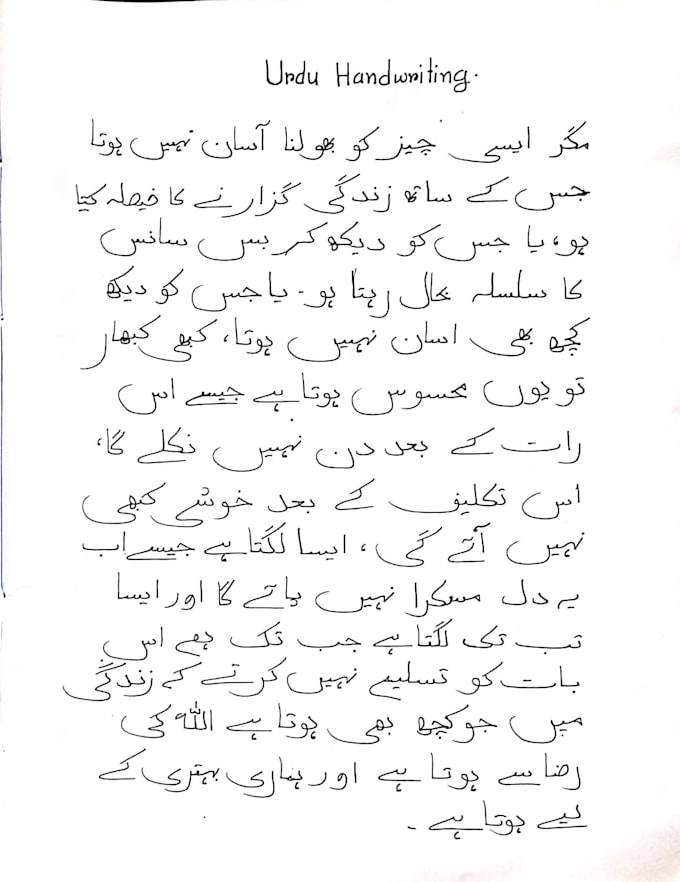 Urdu Handwriting.
مگر ایسی چیز کو بھولنا آسان نہیں ہوتا
جس کے ساتھ زندگی گزارنے کا فیصلہ کیا
ہو، یا جس کو دیکھ کر بس سانس
کا سلسلہ بحال رہتا ہو۔ یا جس کو دیکھ
کچھ بھی اسان نہیں ہوتا، کبھی کبھار
تو یوں محسوس ہوتا ہے جیسے اس
رات کے بعد دن نہیں نکلے گا،
اس تکلیف کے بعد خوشی کبھی
نہیں آئے گی، ایسا لگتا ہے جیسے اب
یہ دل مسکرا نہیں پائے گا اور ایسا
تب تک لگتا ہے جب تک ہم اس
بات کو تسلیم نہیں کرتے کہ زندگی
میں جو کچھ بھی ہوتا ہے اللہ کی
رضا سے ہوتا ہے اور ہماری بہتری کے
لیے ہوتا ہے۔